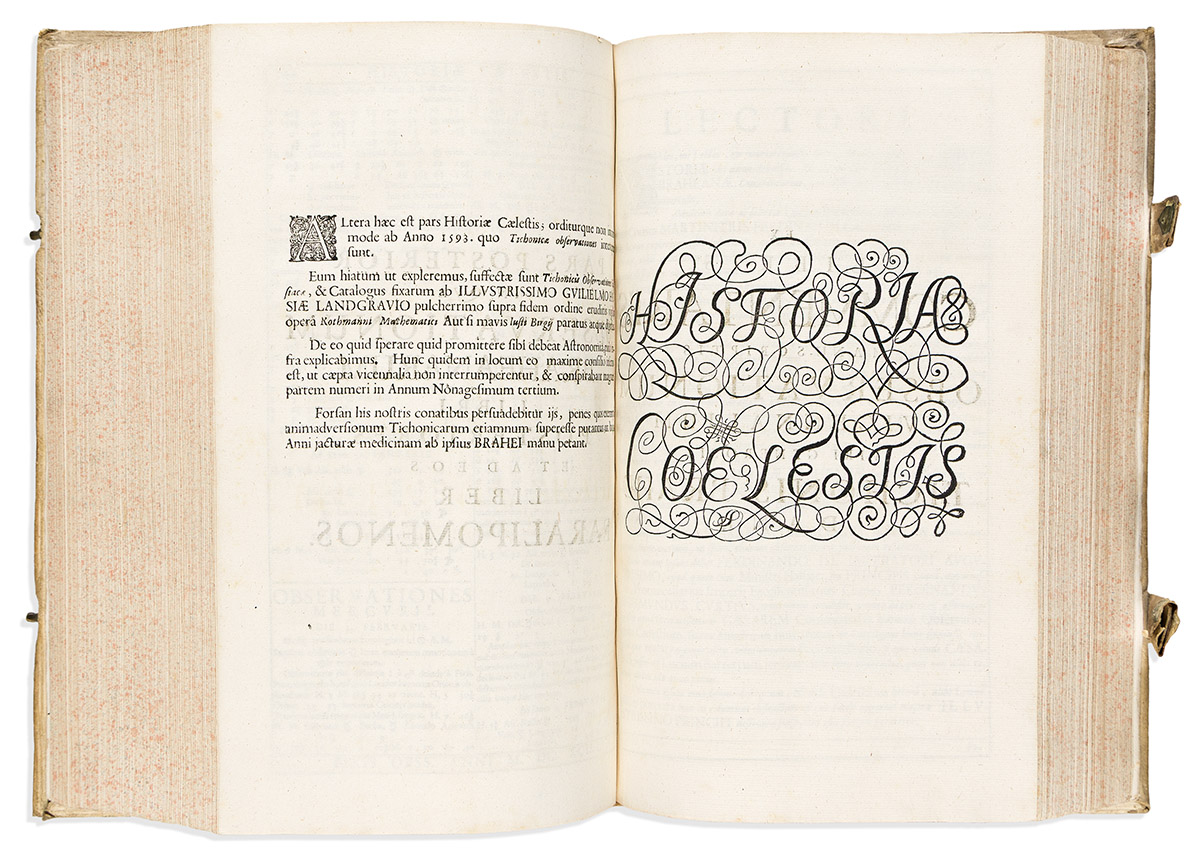 ALtera hæc est pars Historiæ Cælestis; orditurque non
mode ab Anno 1593. quo Tichonicæ observationes
sunt.
Eum hiatum ut expleremus, suffectæ sunt Tichonicis
& Catalogus fixarum ab ILLVSTRISSIMO GVILIELMO
SIÆ LANDGRAVIO pulcherrimo supra fidem ordine
operâ Rothmanni Mathematici Aut si mavis Iusti Birgij paratus atque
De eo quid sperare quid promittere sibi debeat
fra explicabimus. Hunc quidem in locum eo maxime
est, ut cæpta vicennalia non interrumperentur, & conspirabat
partem numeri in Annum Nônagesimum tertium.
Forsan his nostris conatibus persuadebitur ijs, penes
animadversionum Tichonicarum etiamnum superesse
Anni jacturæ medicinam ab ipsius BRAHEI manu petant.
HISTORIA
COELESTIS
ET AD EOS
LIBER
PARALIPOMENOS.
OBSERVATIONES